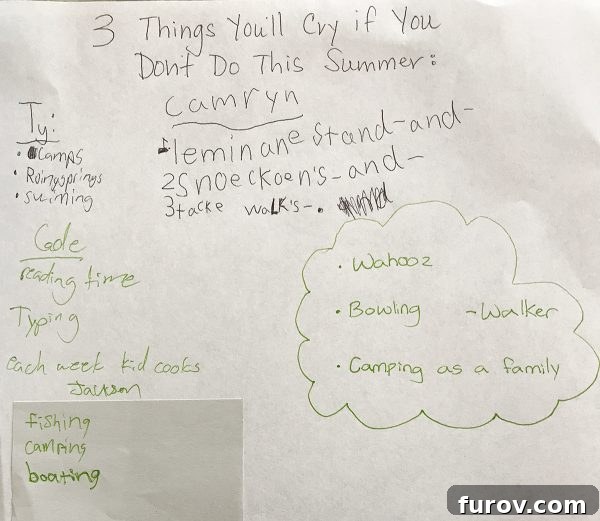 3 Things You'll Cry if You
Don't Do This Summer:
Ty:
• Camps
• Roingsprings
• swiming
Camryn
1 leminane stand-and-
2 Snoeckoen's-and-
3 tacke walk's-.
Cade
reading time
Typing
each week kid cooks
Jackson
fishing
camping
boating
• Wahooz
• Bowling -Walker
• Camping as a family
furov.com